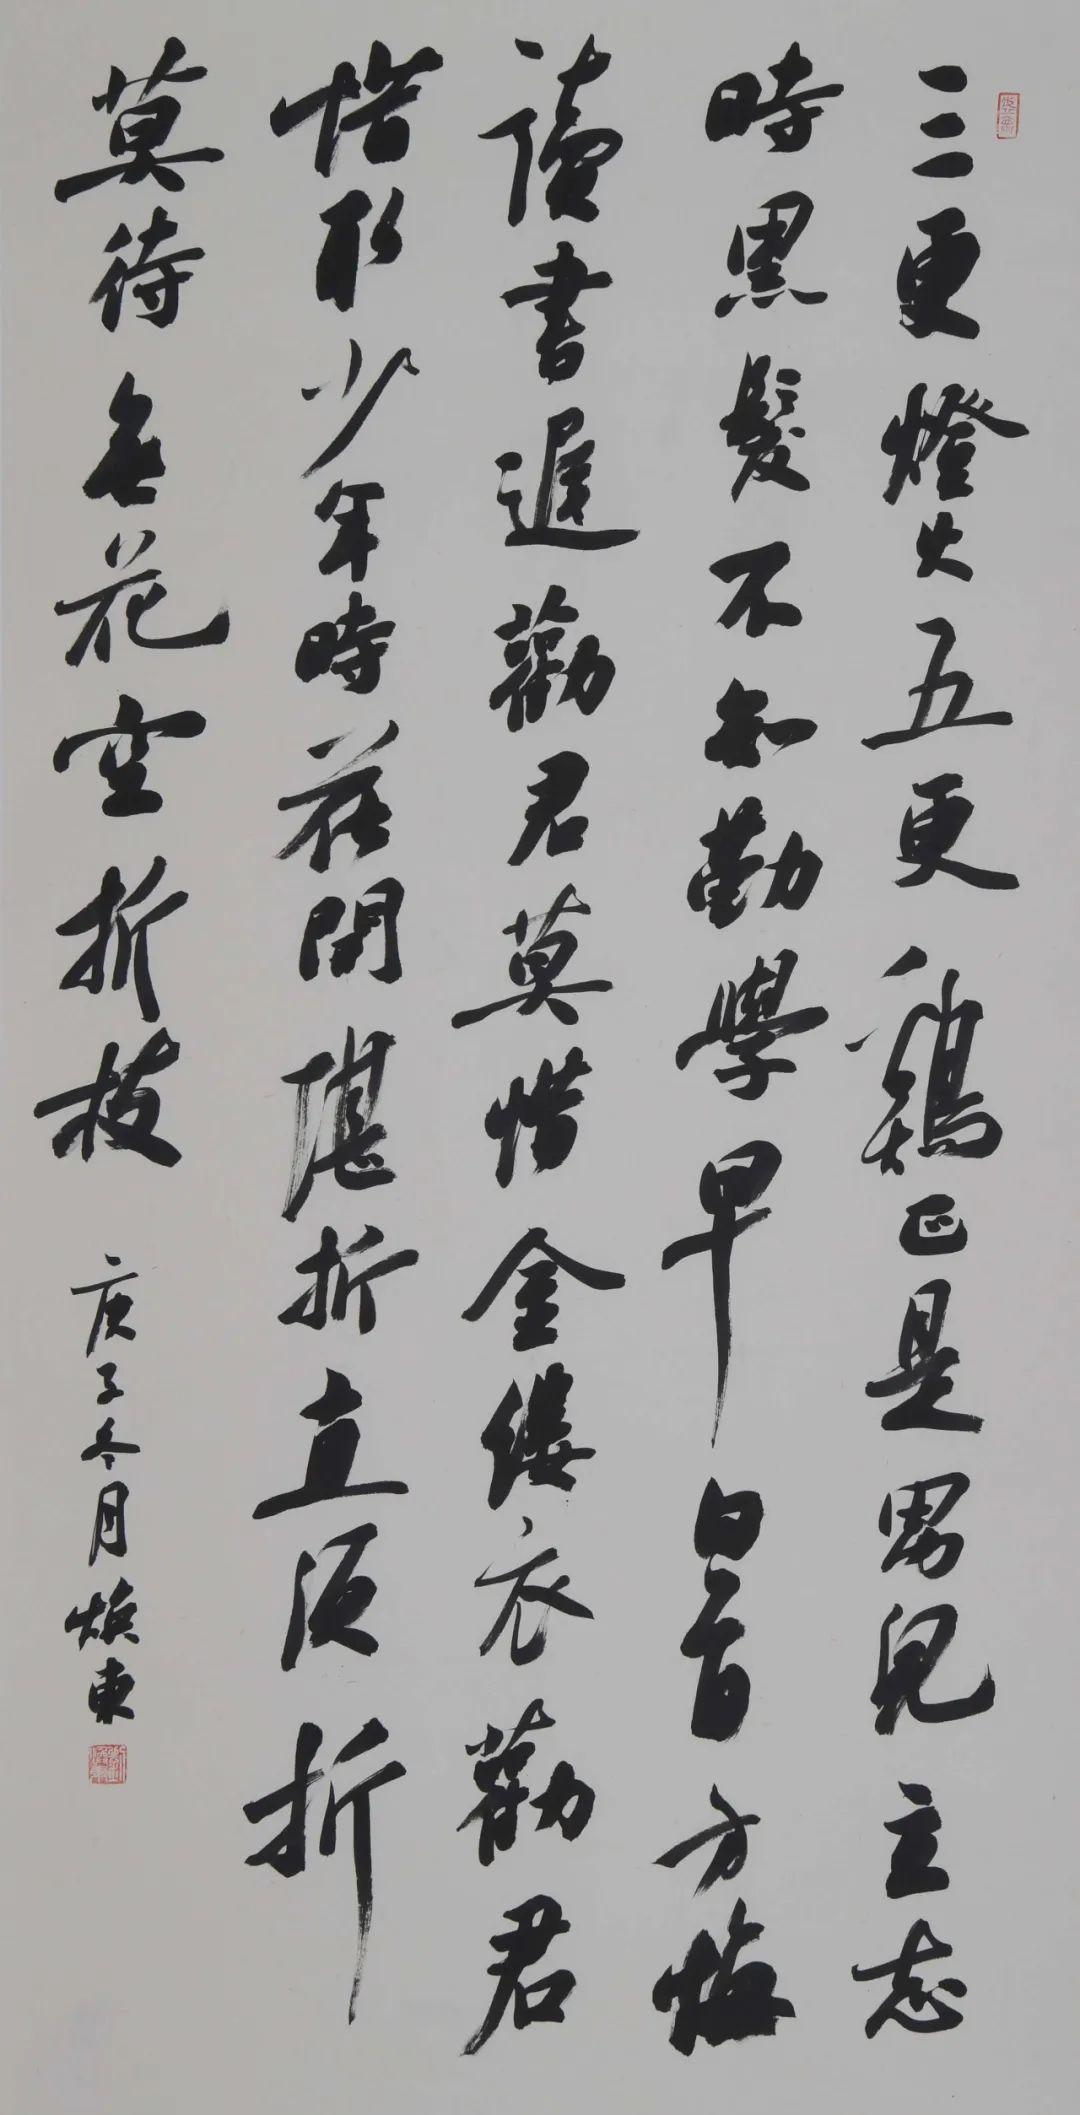 三更燈火五更鷄正是男兒立志
時黑髮不知勤學早白首方悔
讀書遲勸君莫惜金縷衣勸君
惜取少年時花開堪折直須折
莫待無花空折枝 庚子冬月煥東